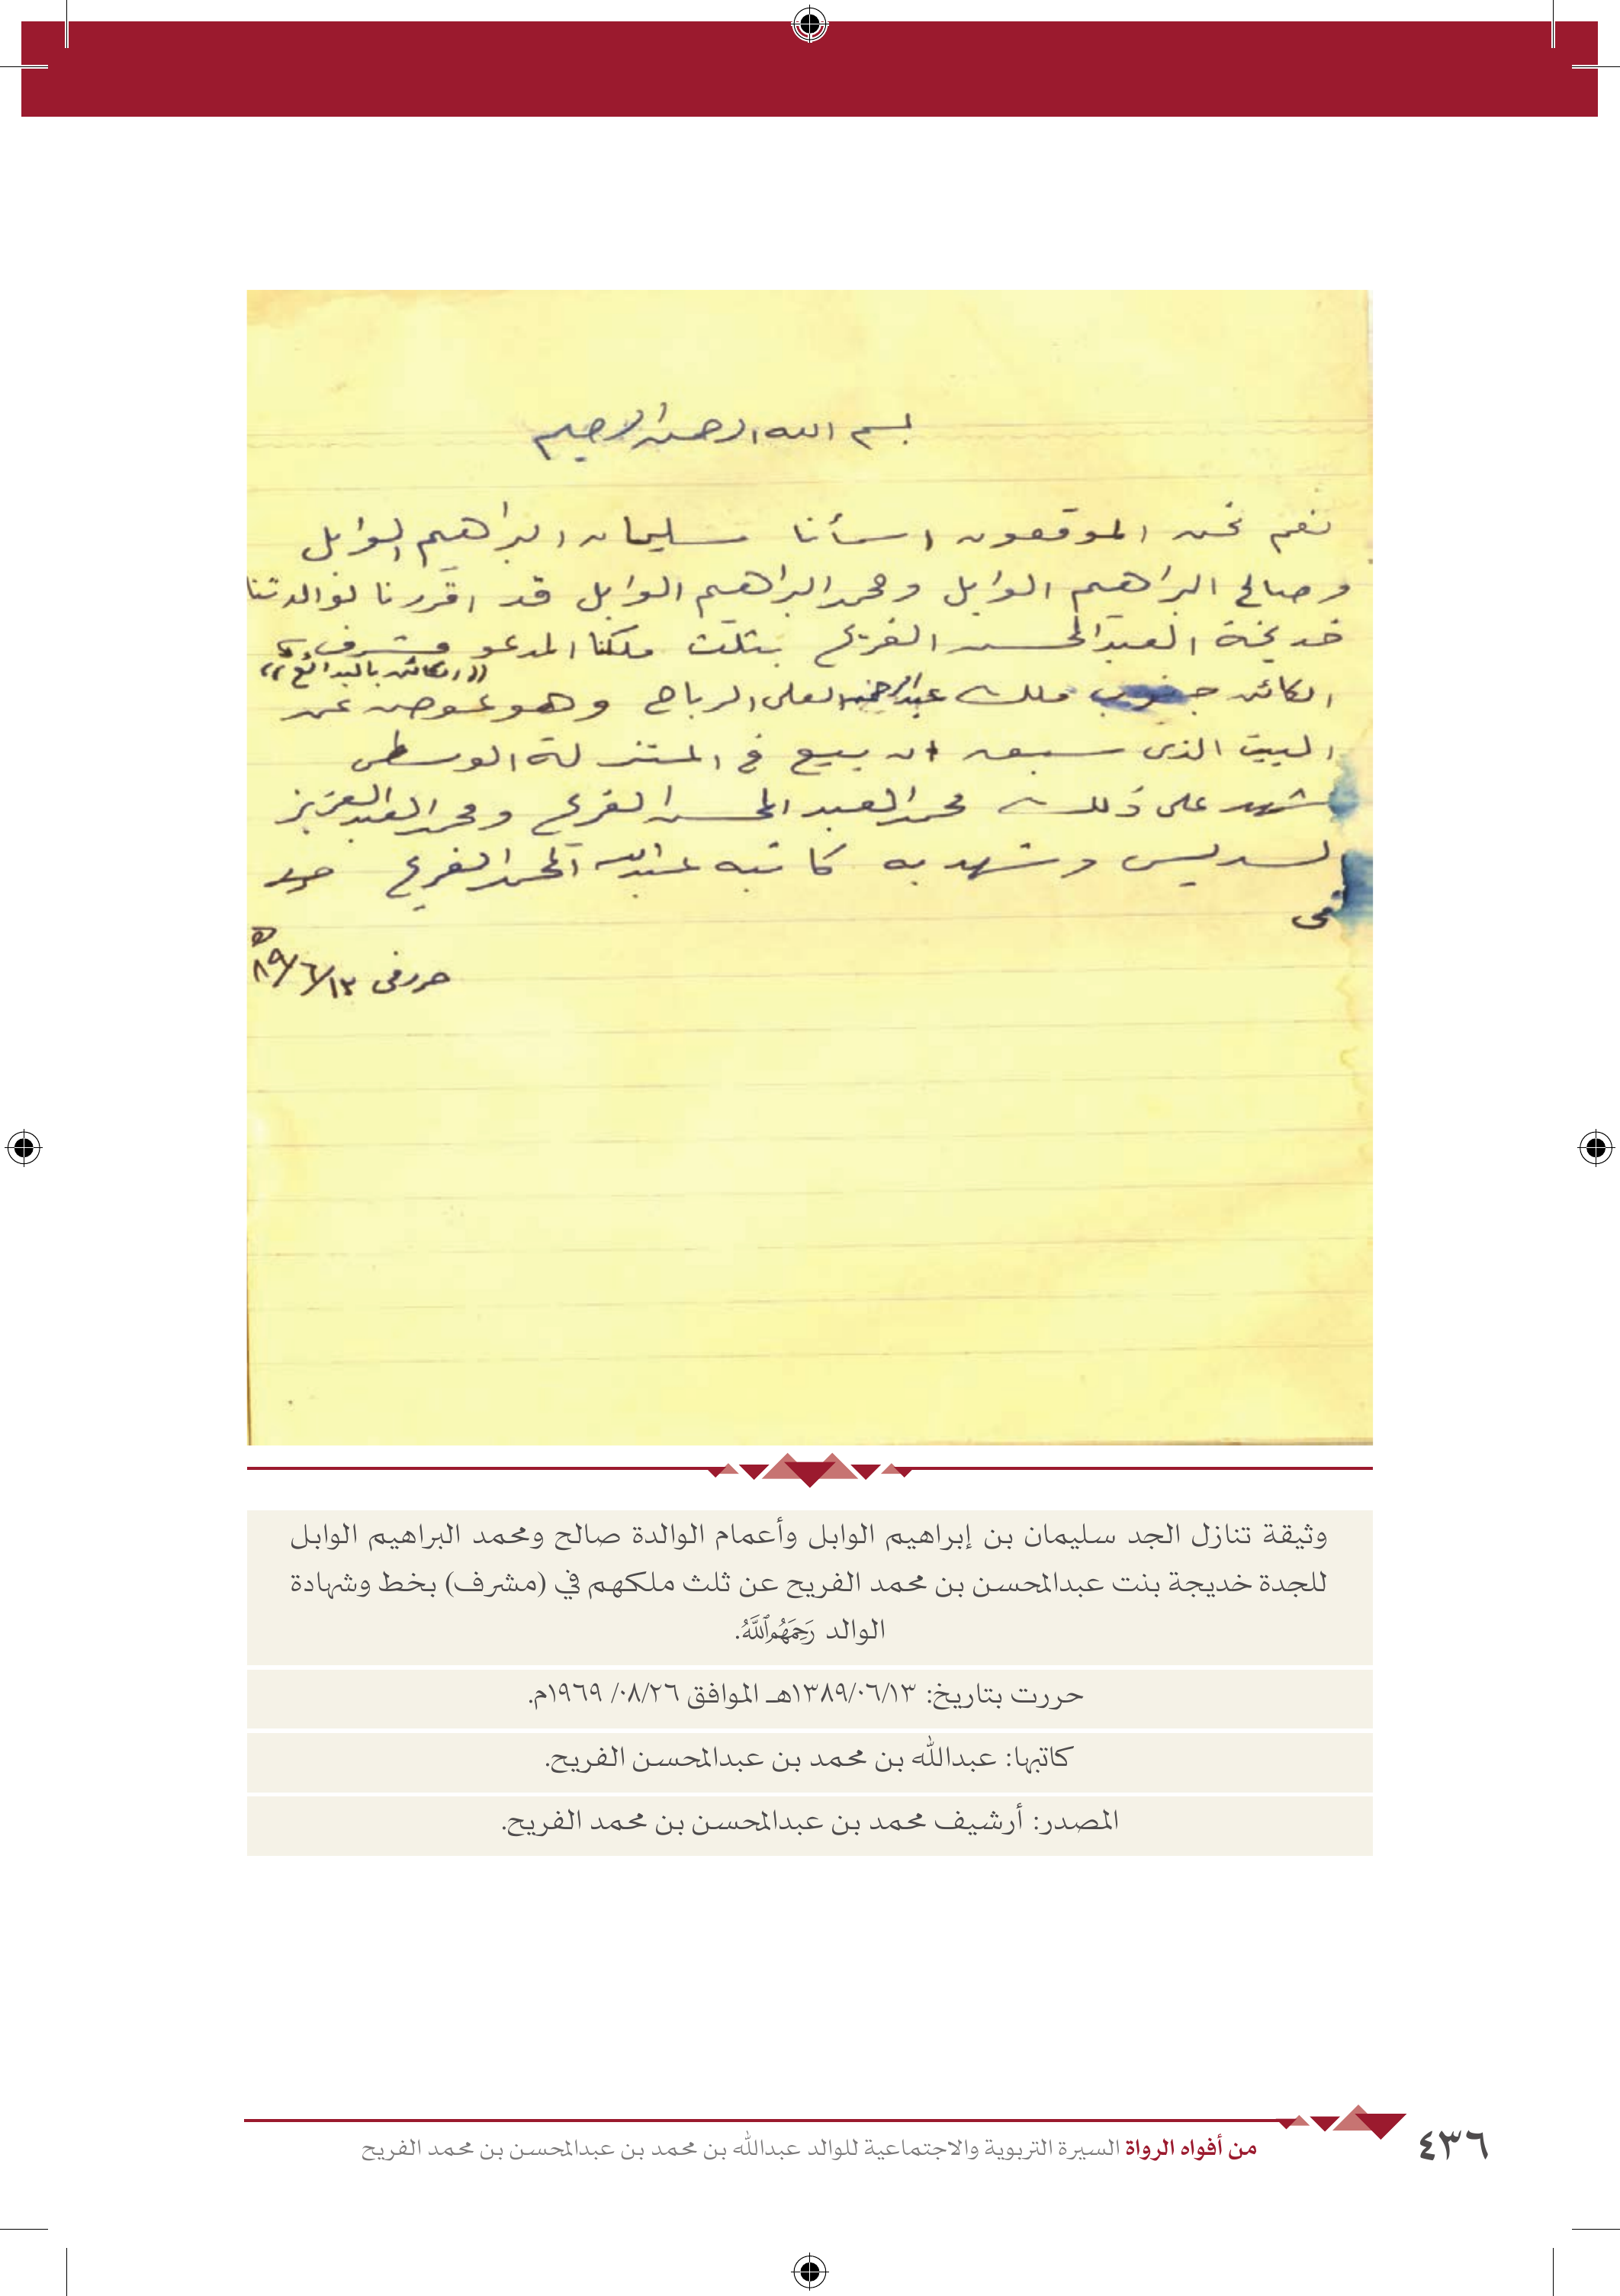 بسم الله الرحمن الرحيم
نعم نحن الموقعون اسمأنا سليمان البراهيم الوابل
وصالح البراهيم الوابل ومحمد البراهيم الوابل قد اقررنا لوالدتنا
خديجة العبدالمحسن الفريح بثلث ملكنا المدعو مشرف
((الكائن بالبدائع))
الكائن جنوب ملك عبدالرحمن العلي الرباح وهو عوض عن
البيت الذي سبق ان بيع في المنزلة الوسطى
شهد على ذلك محمد العبد المحسن الفريح ومحمد العبدالعزيز
السديس وشهد به كاتبه عبدالله المحمد الفريح
حرر في ٨٩/٦/١٣ هـ
وثيقة تنازل الجد سليمان بن إبراهيم الوابل وأعمام الوالدة صالح ومحمد البراهيم الوابل
للجدة خديجة بنت عبدالمحسن بن محمد الفريح عن ثلث ملكهم في (مشرف) بخط وشهادة
الوالد رَحِمَهُمُ ٱللَّهُ.
حررت بتاريخ: ١٣٨٩/٠٦/١٣هـ الموافق ٠٨/٢٦/ ١٩٦٩م.
كاتبها: عبدالله بن محمد بن عبدالمحسن الفريح.
المصدر: أرشيف محمد بن عبدالمحسن بن محمد الفريح.
من أفواه الرواة السيرة التربوية والاجتماعية للوالد عبدالله بن محمد بن عبدالمحسن بن محمد الفريح
٤٣٦